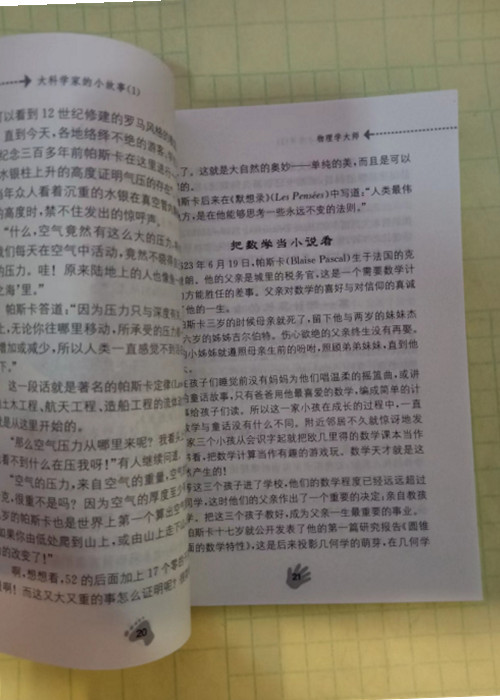 大科学家的小故事(1)
可以看到12世纪修建的罗马风格的
直到今天，各地络绎不绝的游客，
纪念三百多年前帕斯卡在这里进行
水银柱上升的高度证明气压的存在
当年众人看着沉重的水银在真空管
的高度时，禁不住发出的惊呼声。
“什么，空气竟然有这么大的压力，
我们每天在空气中活动，竟然不
的压力。哇！原来陆地上的人也像
之海’里。”
帕斯卡答道：“因为压力只与深度有
上，无论你往哪里移动，所承受的压力
增加或减少，所以人类一直感觉不到
下。”
这一段话就是著名的帕斯卡定律
土木工程、航天工程、造船工程的流体
就是从这里开始的。
“那么空气压力从哪里来呢？我看
看不到什么在压我呀！”有人继续问道
“空气的压力，来自空气的重量，空气
克，很重不是吗？因为空气的厚度至少
岁的帕斯卡也是世界上第一个算出空气
如果你由低处爬到山上，或由山上走下山
的改变了！”
啊，想想看，52的后面加上17个零的
啊！而这又大又重的事怎么证明呢？
20
物理学大师
了。这就是大自然的奥妙——单纯的美，而且是可以
的。
斯卡后来在《默想录》(Les Pensées)中写道：“人类最伟
方，是在他能够思考一些永远不变的法则。”
把数学当小说看
623年6月19日，帕斯卡(Blaise Pascal)生于法国的克
朗。他的父亲是城里的税务官，这是一个需要数学计
们方能胜任的差事。父亲对数学的喜好与对信仰的真诚
了他的一生。
帕斯卡三岁的时候母亲就死了，留下他与两岁的妹妹杰
六岁的姊姊吉尔伯特。伤心欲绝的父亲终生没有再娶。
小姊姊就遵照母亲生前的吩咐，照顾弟弟妹妹，直到他
大。
在孩子们睡觉前没有妈妈为他们唱温柔的摇篮曲，或讲
童话故事，只有爸爸用他最喜爱的数学，编成简单的计
给孩子们读。所以这一家小孩在成长的过程中，一直
数学与童话没有什么不同。附近邻居不久就惊讶地发
家三个小孩从会识字起就把欧几里得的数学课本当作
书看，把数学计算当作有趣的游戏玩。数学天才就是这
然产生的！
等这三个孩子进了学校，他们的数学程度已经远远超过
同学，这时他们的父亲作出了一个重要的决定，亲自教孩
学。把这三个孩子教好，成为父亲一生最重要的事业。
帕斯卡十七岁就公开发表了他的第一篇研究报告《圆锥
面的数学特性》，这是后来投影几何学的萌芽，在几何学
21